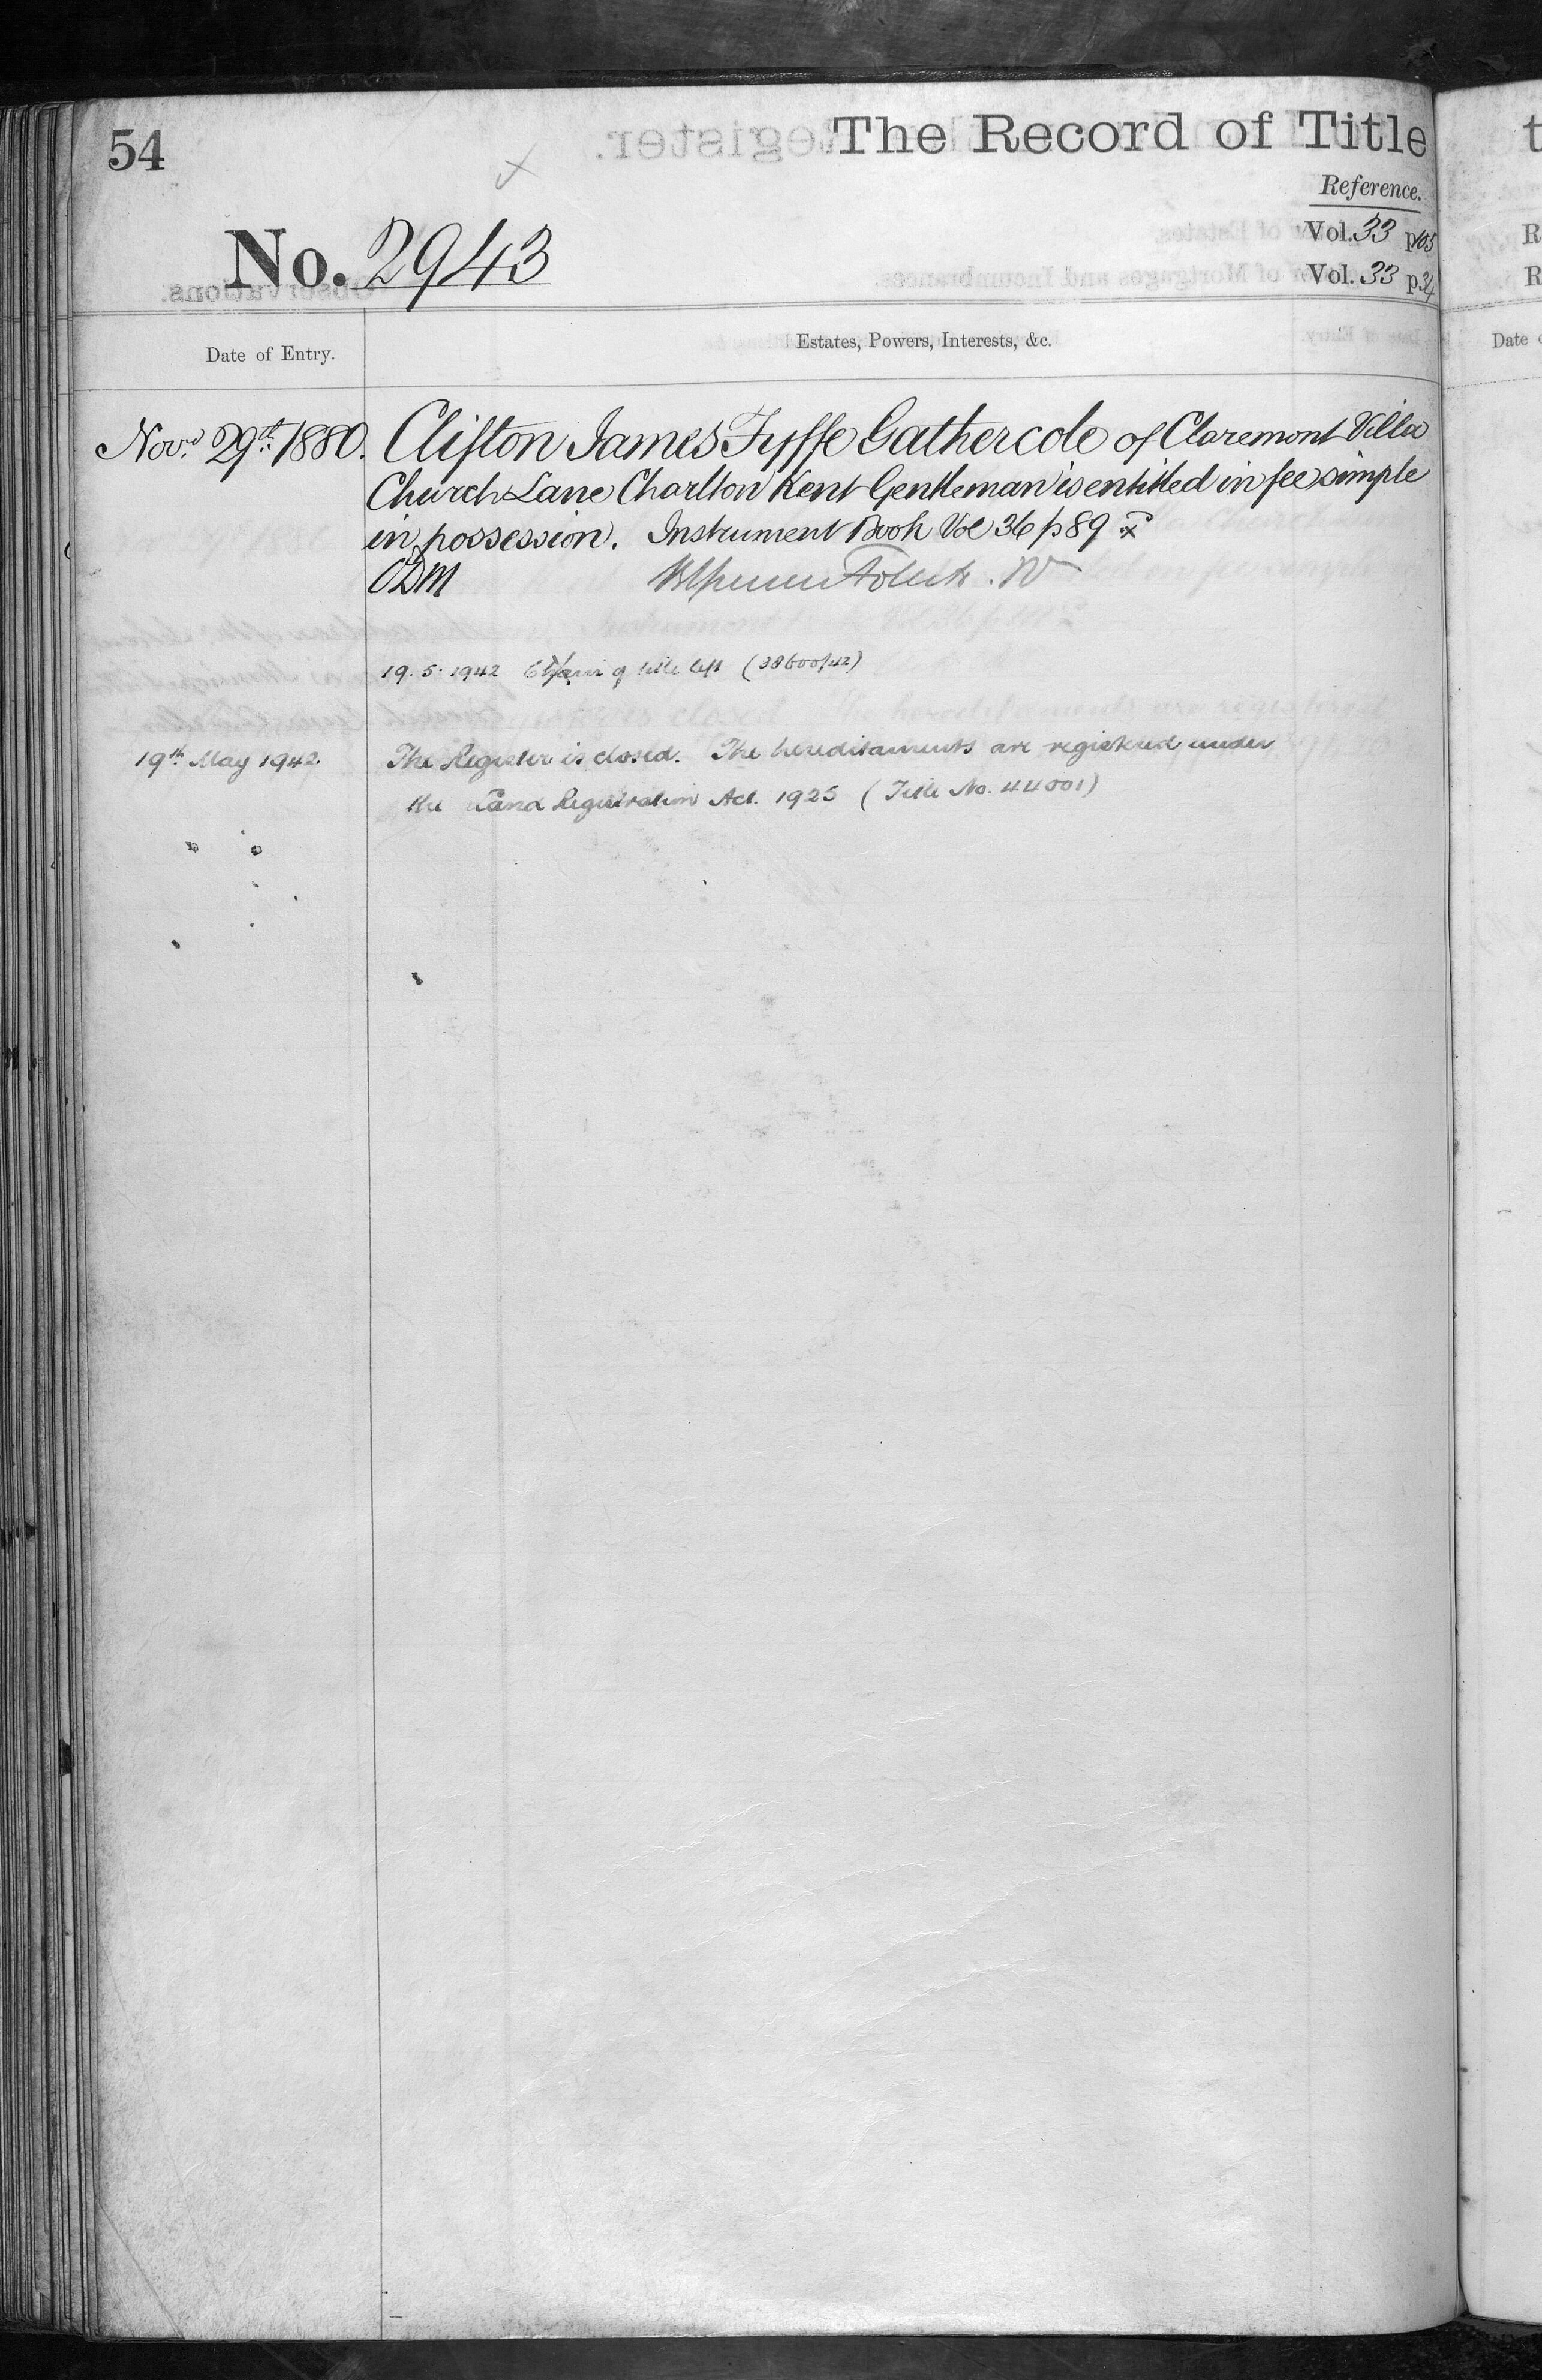 54
The Record of Title
Reference.
Vol. 33 p 105
Vol. 33 p 34
No. 2943
Date of Entry.
Estates, Powers, Interests, &c.
Novr. 29th. 1880. Clifton James Fyffe Gathercole of Claremont Villa
Church Lane Charlton Kent Gentleman is entitled in fee simple
in possession. Instrument Book Vol 36 p 89
ODM
19. 5. 1942 of title left (38600/42)
19th May 1942. The Register is closed. The hereditaments are registered under
the Land Registration Act. 1925 (Title No. 44001)
t
R
R
Date